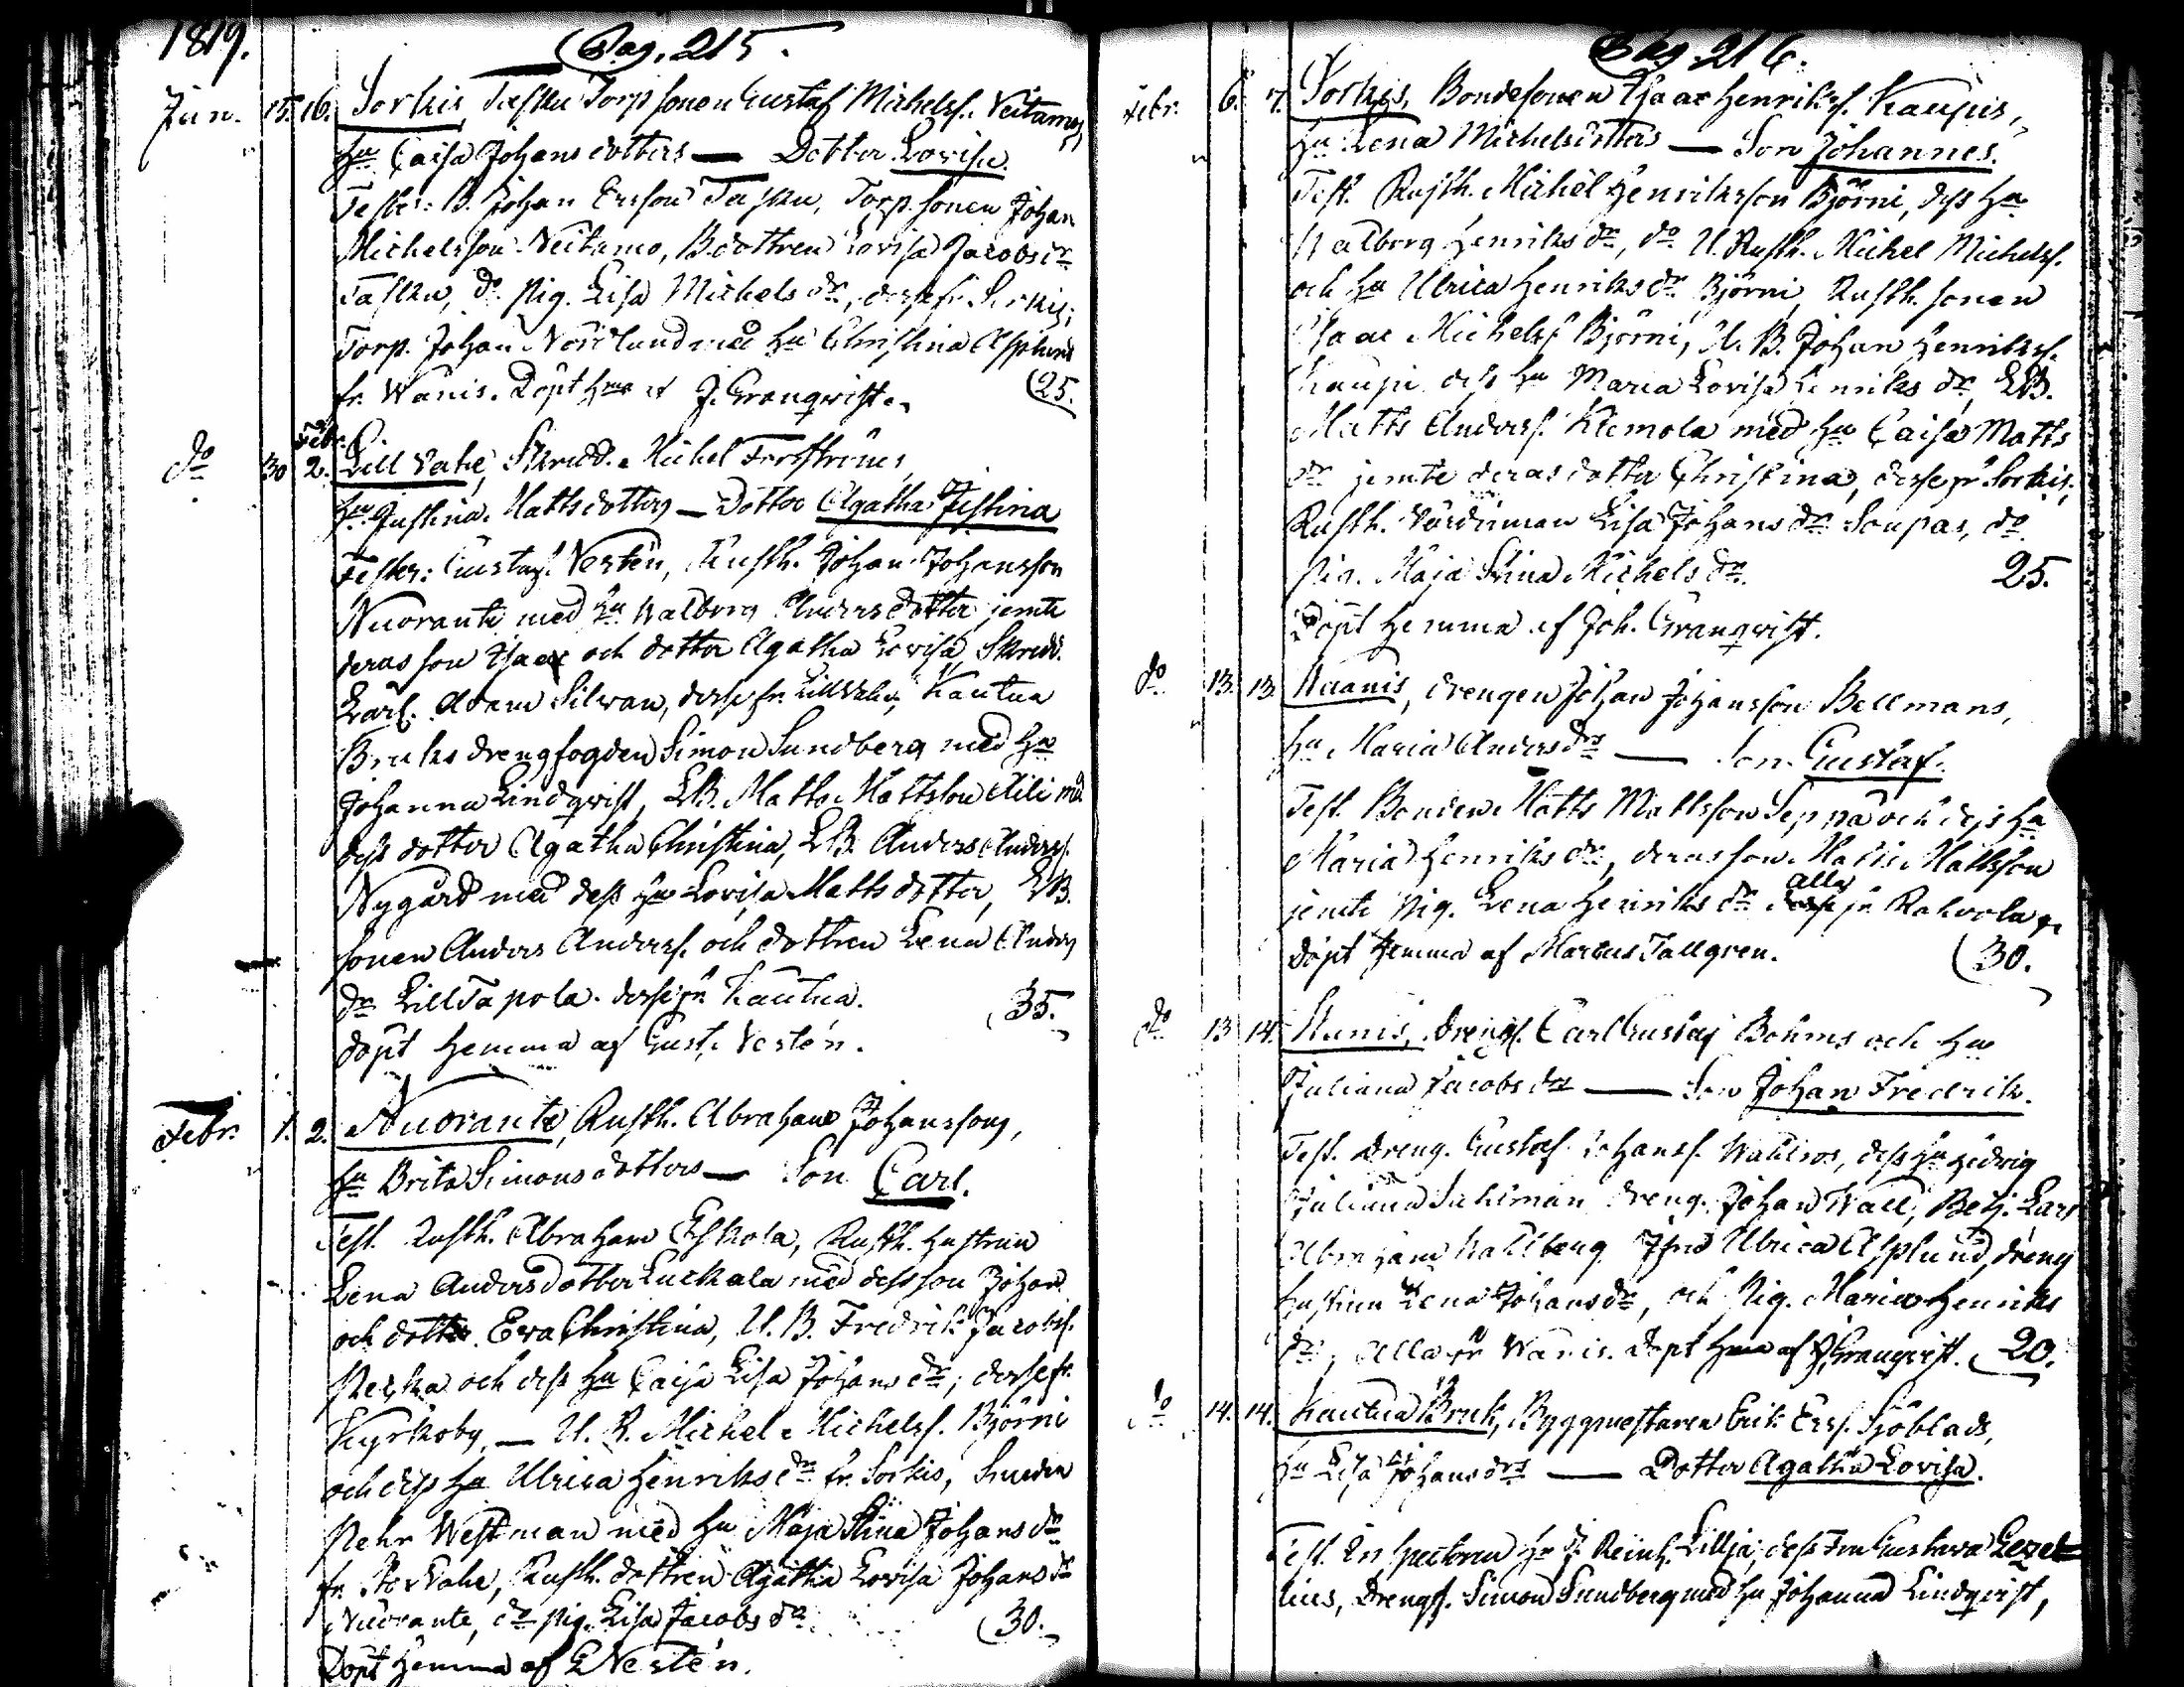 1819.
Pag. 215.
Jan. 15. 16. Sorkis, Tasku Torpsonen Gustaf Michelss. Neitamos
hu Caisa Johansdotters — Dotter Lovisa.
Testes: B. Johan Ersson Tasku, Torp. sonen Johan
Michelsson Neitamo, B. dottren Lovisa Jacobs dr
Tasku, do Pig. Lisa Michels dr, desse fr. Sorkis;
Torp. Johan Nordlund med hu Christina Asplund
fr. Wanis. Döpt hma af J. Granqvist. (25.
do 30 Febr. 2. Lill Vahe, Skredd. Michel Forsströms,
hu Justina Mattsdotters — Dotter Agatha Justina
Testes: Gustaf Nestén, Rusth. Johan Johansson
Nuoranti med hu Walborg Anders dotter jemte
deras son Isaac och dotter Agatha Lovisa, Skredd.
Lärl. Adam Silwan, desse fr. Lill Vahe, Kautua
Bruks drengfogden Simon Sundberg med hu
Johanna Lindqvist, LB. Matts Mattsson Mili med
dess dotter Agatha Christina, LB. Anders Anderss.
Nygård med dess hu Lovisa Matts dotter, LB.
sonen Anders Anderss. och dottren Lena Anders
dr Lill Tapola. desse fr. Kautua. (35.
döpt hemma af Gust. Nestén.
Febr. 1. 2. Nuoranti, Rusth. Abraham Johanssons,
hu Brita Simonsdotters — Son Carl.
Test. Rusth. Abraham Eskola, Rusth. hustrun
Lena Andersdotter Luckala med dess son Johan
och dotter Eva Christina, U. B. Fredrik Jacobss.
och dess hu Caisa Lisa Johans dr, desse fr.
Kyrkoby. — U. R. Michel Michelss. Björni
och dess hu Ulrica Henriks dr fr. Sorkis, Smeden
Pehr Westman med hu Maja Stina Johans dr
fr. Stor Vahe, Rusth. dottren Agatha Lovisa Johans dr
Nuoranti, do pig. Lisa Jacobs dr. (30.
Döpt hemma af G Nestén.
Pag. 216.
Febr. 6. 7. Sorkis, Bondesonen Isaac Henrikss. Kaupis,
hu Lena Michelsdotters — Son Johannes.
Test. Rusth. Michel Henriksson Björni, dess hu
Walborg Henriks dr, do U. Rusth. Michel Michelss.
och hu Ulrica Henriks dr Björni, Rusth. sonen
Isaac Michelss Björni, U. B. Johan Henrikss.
Kaupi dess hu Maria Lovisa Henriks dr, LB.
Matts Anderss. Klemola med hu Caisa Matts
dr jemte deras dotter Christina, desse fr Sorkis;
Rusth. Värdinnan Lisa Johans dr Soupas, do
pig. Maja Stina Michels dr. 25.
Döpt hemma af Joh. Granqvist.
do 13. 13. Waanis, drengen Johan Johansson Bellmans,
hu Maria Anders drs — Son Gustaf.
Test. Bonden Matts Mattsson Seppä och dess hu
Maria Henriks dr, deras son Matts Mattsson
jemte Pig. Lena Henriks dr alla fr. Rahvola,
döpt hemma af Marcus Tallgren. (30.
do 13 14. Wanis, Drengf. Carl Gustaf Böhms och hu
Juliana Jacobs drs — Son Johan Fredrik.
Test. Dreng. Gustaf Johanss. Wahlros, dess hu Hedvig
Juliana Sahlman dreng. Johan Wall, Betj. Lars
Abraham Wahlberg Jfru Ulrica Asplund, dreng
hustrun Lena Johans dr, och Pig. Maria Henriks
dr, alla fr Wanis. Döpt hma af J. Granqvist. (20.
do 14. 14. Kautua Bruk, Byggmestaren Erik Erss. Sjöblads,
hu Lisa Johans drs — Dotter Agatha Lovisa.
Test. Inspectoren Hr J. Reinh. Lillja, dess Fru Gustava Lezel=
lius, Drengf. Simon Sundberg med hu Johanna Lindqvist,